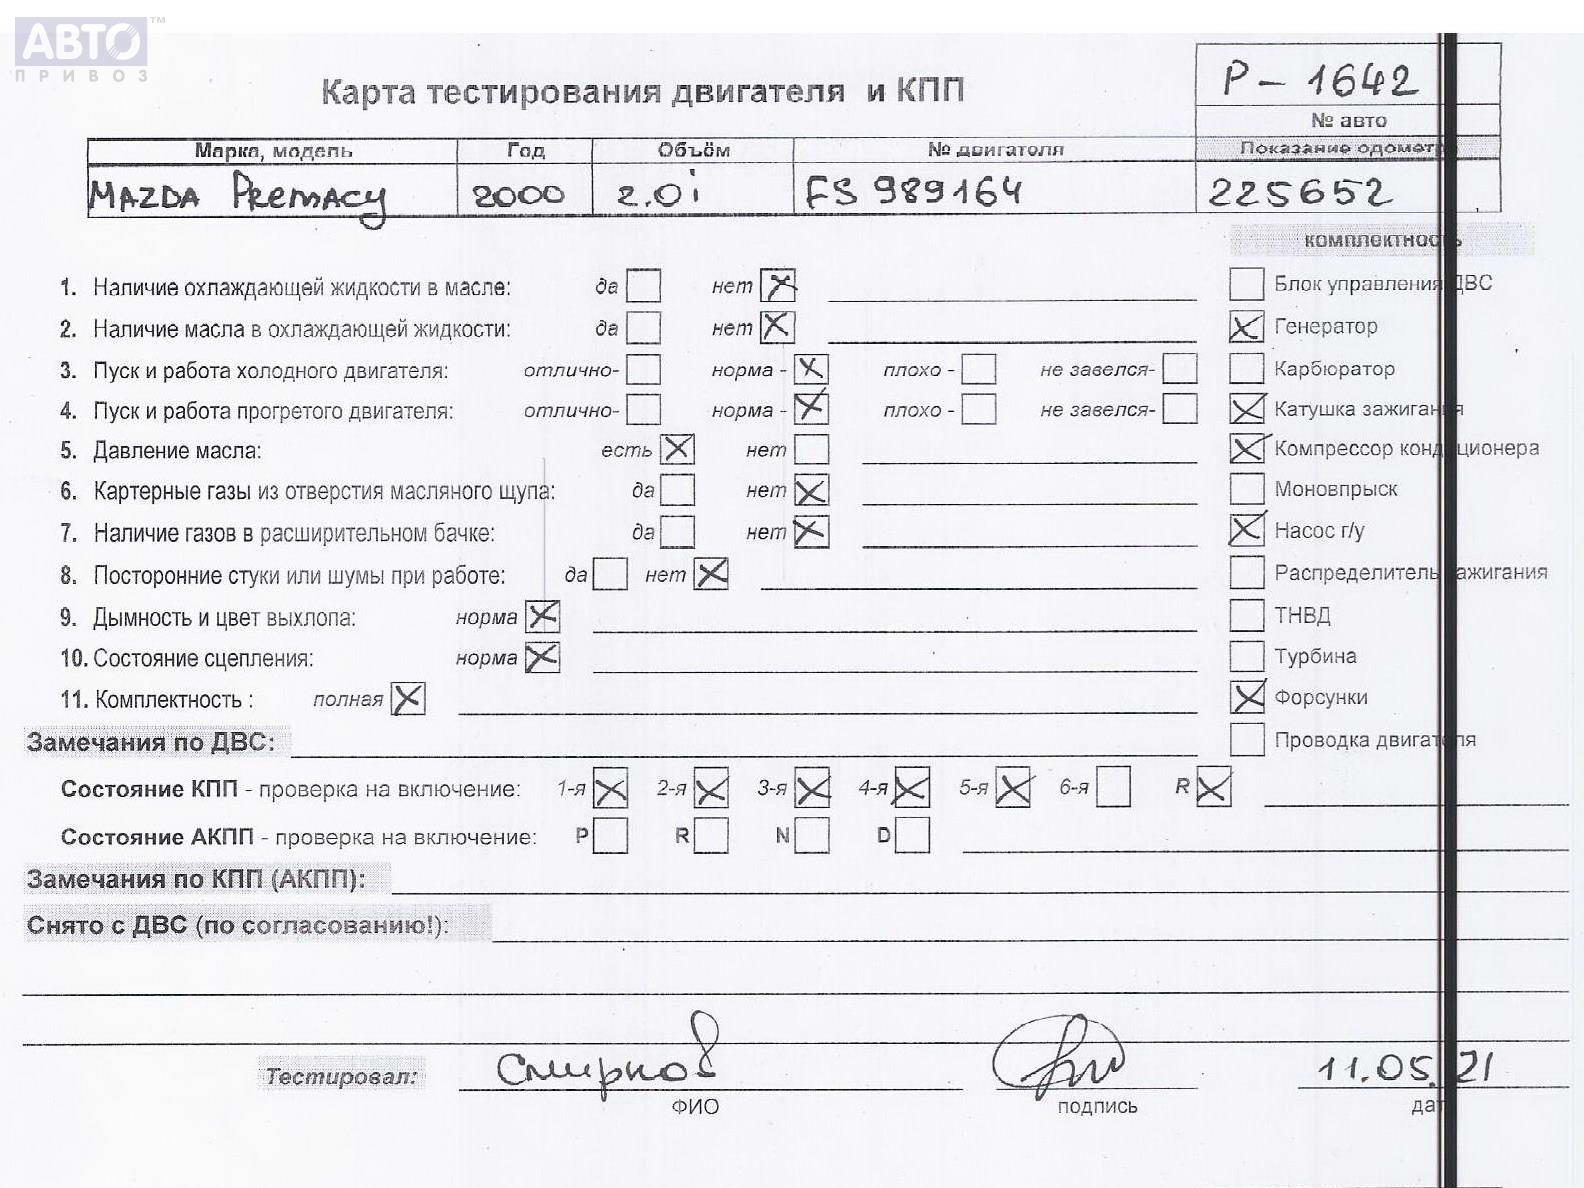 АВТО™
ПРИВОЗ
Карта тестирования двигателя и КПП
P - 1642
№ авто
Марка, модель Год Объём № двигателя Показание одометр
MAZDA Premacy 2000 2.0i FS 989164 225652
комплектность
1. Наличие охлаждающей жидкости в масле: да нет X
Блок управления ДВС
2. Наличие масла в охлаждающей жидкости: да нет X
X Генератор
3. Пуск и работа холодного двигателя: отлично- норма - X плохо - не завелся-
Карбюратор
4. Пуск и работа прогретого двигателя: отлично- норма - X плохо - не завелся-
X Катушка зажигания
5. Давление масла: есть X нет
X Компрессор кондиционера
6. Картерные газы из отверстия масляного щупа: да нет X
Моновпрыск
7. Наличие газов в расширительном бачке: да нет X
X Насос г/у
8. Посторонние стуки или шумы при работе: да нет X
Распределитель зажигания
9. Дымность и цвет выхлопа: норма X
ТНВД
10. Состояние сцепления: норма X
Турбина
11. Комплектность : полная X
X Форсунки
Замечания по ДВС:
Проводка двигателя
Состояние КПП - проверка на включение: 1-я X 2-я X 3-я X 4-я X 5-я X 6-я R X
Состояние АКПП - проверка на включение: P R N D
Замечания по КПП (АКПП):
Снято с ДВС (по согласованию!):
Тестировал: Смирнов 11.05.21
ФИО подпись дат